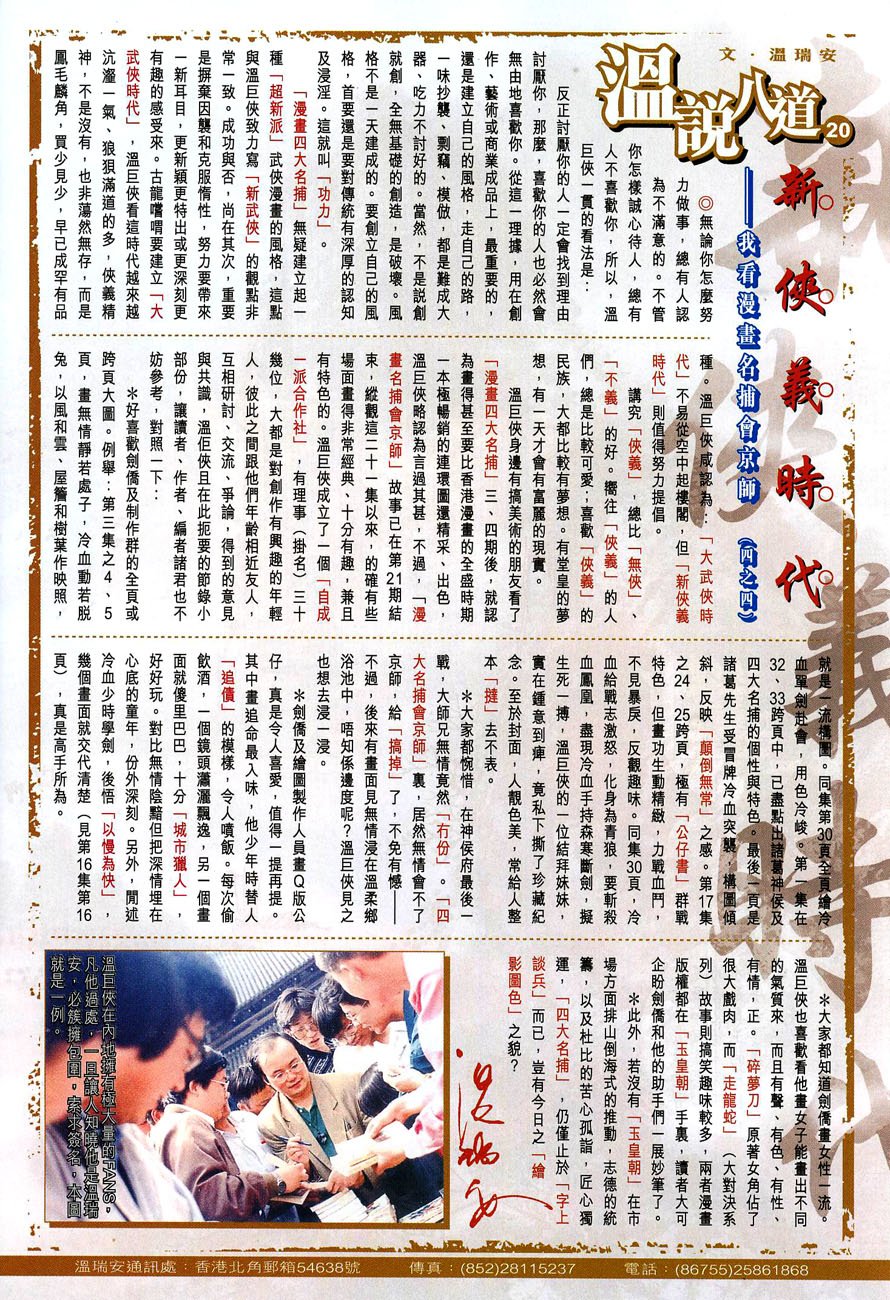 文·溫瑞安
溫說八道20
新俠義時代
——我看漫畫名捕會京師（四之四）
◎無論你怎麼努
力做事，總有人認
為不滿意的。不管
你怎樣誠心待人，總有
人不喜歡你，所以，溫
巨俠一貫的看法是：
反正討厭你的人一定會找到理由
討厭你，那麼，喜歡你的人也必然會
無由地喜歡你。從這一理據，用在創
作、藝術或商業成品上，最重要的，
還是建立自己的風格，走自己的路，
一味抄襲、剽竊、模倣，都是難成大
器、吃力不討好的。當然，不是説創
就創，全無基礎的創造，是破壞。風
格不是一天建成的。要創立自己的風
格，首要還是要對傳統有深厚的認知
及浸淫。這就叫「功力」。
「漫畫四大名捕」無疑建立起一
種「超新派」武俠漫畫的風格，這點
與溫巨俠致力寫「新武俠」的觀點非
常一致。成功與否，尚在其次，重要
是摒棄因襲和克服惰性，努力要帶來
一新耳目，更新穎更特出或更深刻更
有趣的感受來。古龍嚐謂要建立「大
武俠時代」，溫巨俠看這時代越來越
沆瀣一氣、狼狽滿道的多，俠義精
神，不是沒有，也非蕩然無存，而是
鳳毛麟角，買少見少，早已成罕有品
種。溫巨俠咸認為：「大武俠時
代」不易從空中起樓閣，但「新俠義
時代」則值得努力提倡。
講究「俠義」，總比「無俠」、
「不義」的好。嚮往「俠義」的人
們，總是比較可愛；喜歡「俠義」的
民族，大都比較有夢想。有堂皇的夢
想，有一天才會有富麗的現實。
溫巨俠身邊有搞美術的朋友看了
「漫畫四大名捕」三、四期後，就認
為畫得甚至要比香港漫畫的全盛時期
一本極暢銷的連環圖還精采、出色，
溫巨俠略認為言過其甚，不過，「漫
畫名捕會京師」故事已在第21期結
束，縱觀這二十一集以來，的確有些
場面畫得非常經典、十分有趣，兼且
有特色的。溫巨俠成立了一個「自成
一派合作社」，有理事（掛名）三十
幾位，大都是對創作有興趣的年輕
人，彼此之間跟他們年齡相近友人，
互相研討、交流、爭論，得到的意見
與共識，溫佢俠且在此扼要的節錄小
部份，讓讀者、作者、編者諸君也不
妨參考，對照一下：
＊好喜歡劍僑及制作群的全頁或
跨頁大圖。例舉：第三集之4、5
頁，畫無情靜若處子，冷血動若脱
兔，以風和雲、屋簷和樹葉作映照，
就是一流構圖。同集第30頁全頁繪冷
血單劍赴會，用色冷峻。第一集在
32、33跨頁中，已盡點出諸葛神侯及
四大名捕的個性與特色。最後一頁是
諸葛先生受冒牌冷血突襲，構圖傾
斜，反映「顛倒無常」之感。第17集
之24、25跨頁，極有「公仔書」群戰
特色，但畫功生動精緻，力戰血鬥，
不見暴戾，反觀趣味。同集30頁，冷
血給戰志激怒，化身為青狼，要斬殺
血鳳凰，盡現冷血手持森寒斷劍，擬
生死一搏，溫巨俠的一位結拜妹妹，
實在鍾意到痺，竟私下撕了珍藏紀
念。至於封面，人靚色美，常給人整
本「撻」去不表。
＊大家都惋惜，在神侯府最後一
戰，大師兄無情竟然「冇份」。「四
大名捕會京師」裏，居然無情會不了
京師，給「搞掉」了，不免有憾——
不過，後來有畫面見無情浸在溫柔鄉
浴池中，唔知係邊度呢？溫巨俠見之
也想去浸一浸。
＊劍僑及繪圖製作人員畫Q版公
仔，真是令人喜愛，值得一提再提。
其中畫追命最入味，他少年時替人
「追債」的模樣，令人噴飯。每次偷
飲酒，一個鏡頭瀟灑飄逸，另一個畫
面就傻里巴巴，十分「城市獵人」，
好好玩。對比無情陰黯但把深情埋在
心底的童年，份外深刻。另外，閒述
冷血少時學劍，後悟「以慢為快」，
幾個畫面就交代清楚（見第16集第16
頁），真是高手所為。
＊大家都知道劍僑畫女性一流。
溫巨俠也喜歡看他畫女子能畫出不同
的氣質來，而且有聲、有色、有性、
有情，正。「碎夢刀」原著女角佔了
很大戲肉，而「走龍蛇」（大對決系
列）故事則搞笑趣味較多，兩者漫畫
版權都在「玉皇朝」手裏，讀者大可
企盼劍僑和他的助手們一展妙筆了。
＊此外，若沒有「玉皇朝」在市
場方面排山倒海式的推動，志德的統
籌，以及杜比的苦心孤詣，匠心獨
運，「四大名捕」，仍僅止於「字上
談兵」而已，豈有今日之「繪
影圖色」之貌？
溫瑞安
溫巨俠在內地擁有極大量的FANS，
凡他過處，一旦讓人知曉他是溫瑞
安，必簇擁包圍，索求簽名，本圖
就是一例。
溫瑞安通訊處：香港北角郵箱54638號 傳真：(852)28115237 電話：(86755)25861868